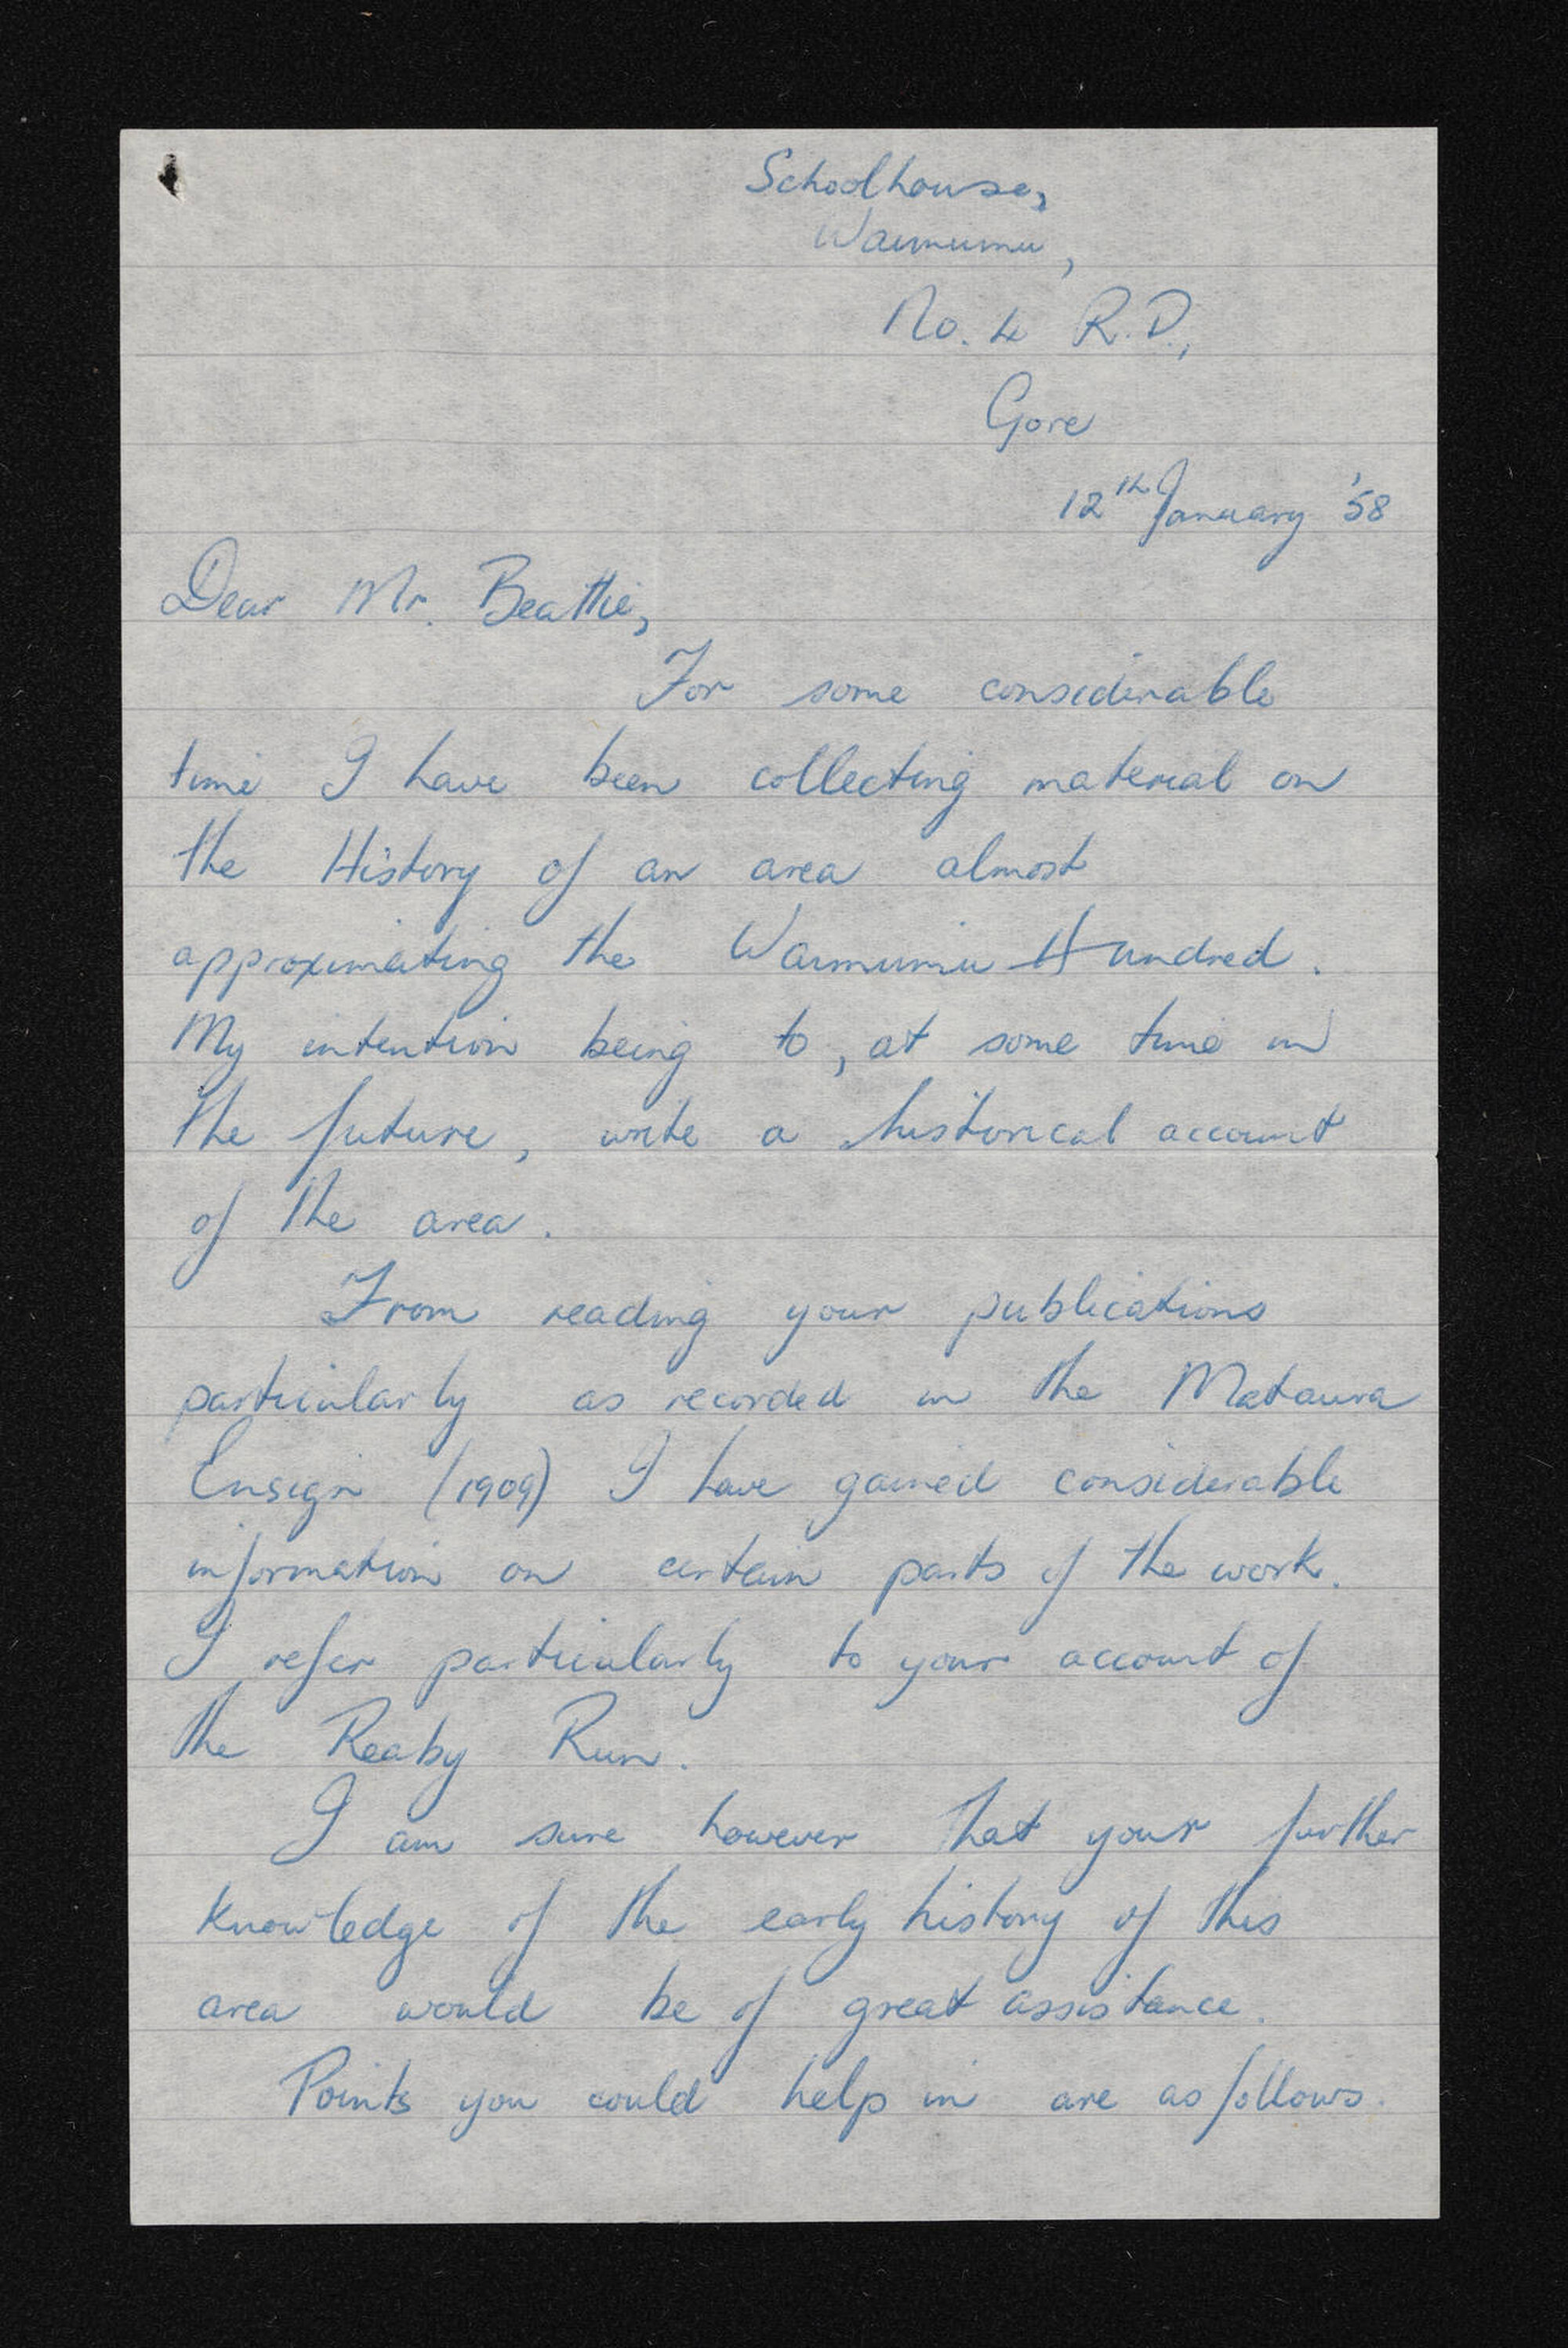 Schoolhouse,
Waimumu,
No. 4 R.D.,
Gore
12th January '58
Dear Mr. Beattie,
For some considerable
time I have been collecting material on
the History of an area almost
approximating the Waimumu Hundred.
My intention being to, at some time in
the future, write a historical account
of the area.
From reading your publications
particularly as recorded in the Mataura
Ensign (1909) I have gained considerable
information on certain parts of the work.
I refer particularly to your account of
the Reaby Run.
I am sure however that your further
knowledge of the early history of this
area would be of great assistance.
Points you could help in are as follows.